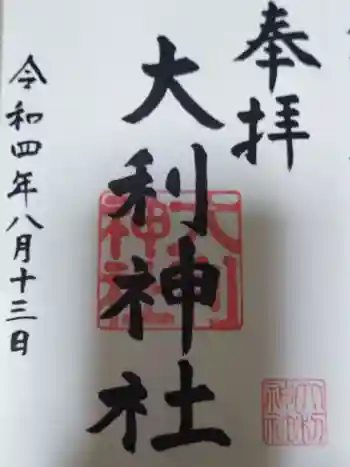 奉拝
大利神社
大利神社
令和四年八月十三日